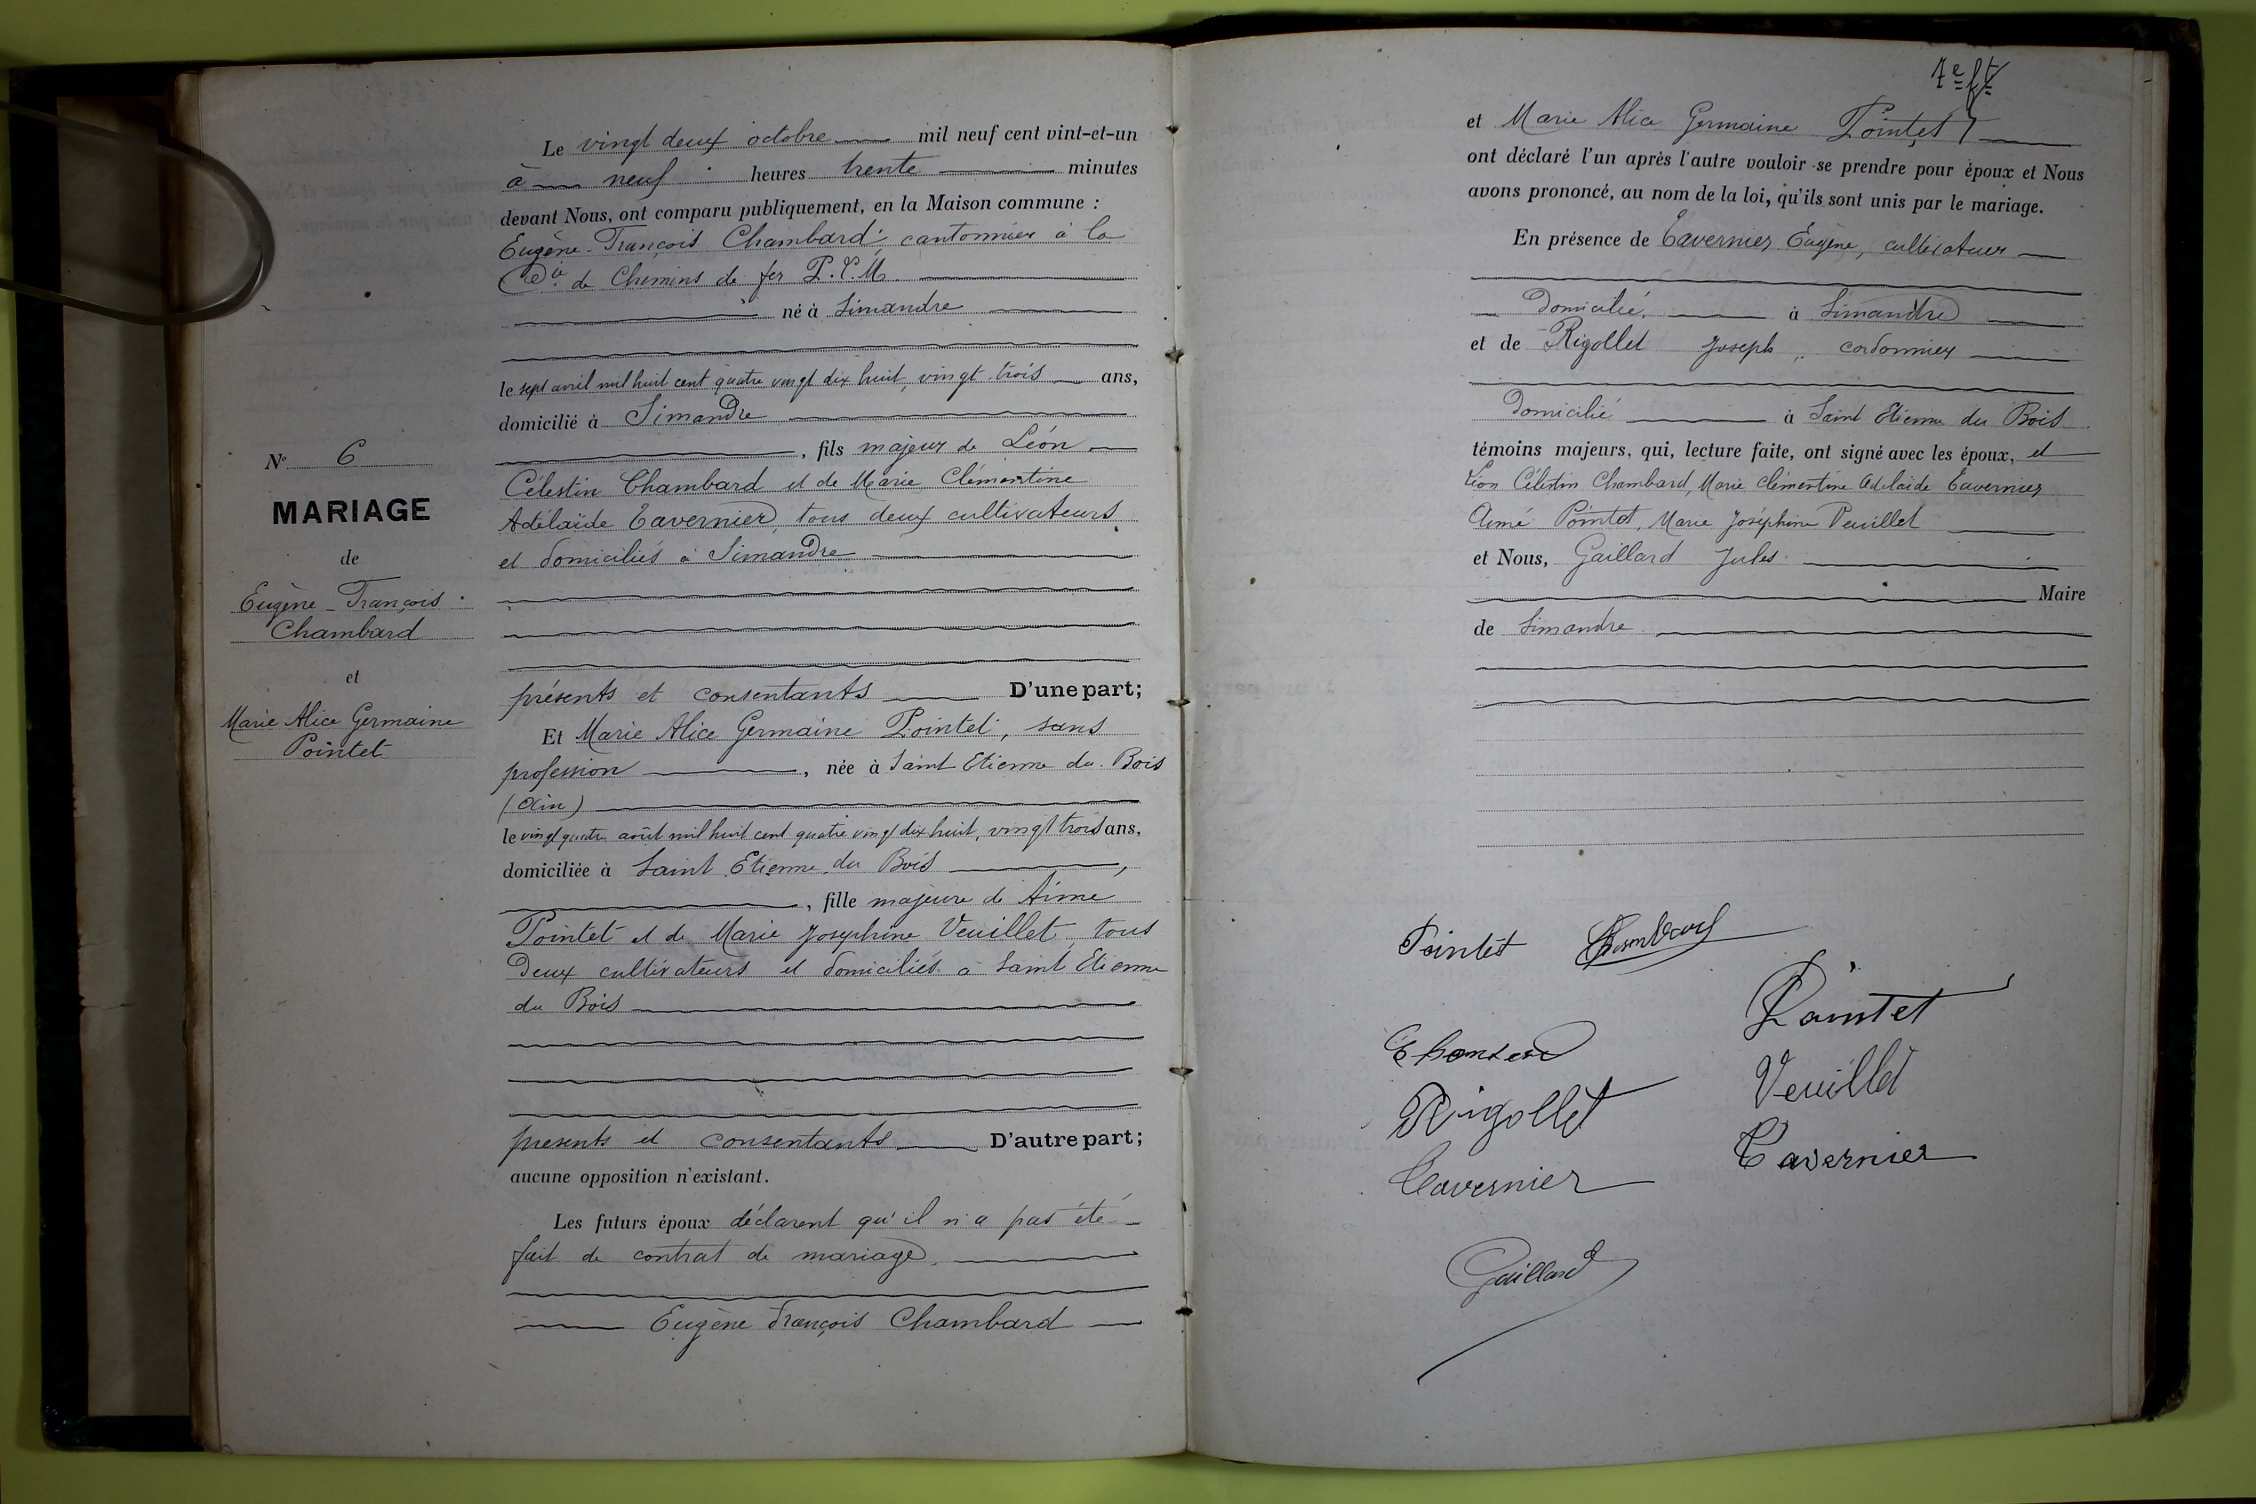 Le vingt deux octobre mil neuf cent vint-et-un
à neuf heures trente minutes
devant Nous, ont comparu publiquement, en la Maison commune :
Eugène-François Chambard, cantonnier à la
Cie de Chemins de fer P.L.M
né à Simandre
le sept avril mil huit cent quatre vingt dix huit, vingt trois ans,
domicilié à Simandre
, fils majeur de Léon
Célestin Chambard et de Marie Clémentine
Adélaïde Tavernier, tous deux cultivateurs
et domiciliés à Simandre
présents et consentants D'une part;
Et Marie Alice Germaine Pointet, sans
profession , née à Saint Etienne du Bois
(Ain)
le vingt quatre août mil huit cent quatre vingt dix huit, vingt trois ans,
domiciliée à Saint Etienne du Bois ,
, fille majeure de Aimé
Pointet et de Marie Joséphine Veuillet, tous
deux cultivateurs et domiciliés à Saint Etienne
du Bois
présents et consentants D'autre part;
aucune opposition n'existant.
Les futurs époux déclarent qu'il n'a pas été
fait de contrat de mariage.
Eugène François Chambard
No 6
MARIAGE
de
Eugène-François
Chambard
et
Marie Alice Germaine
Pointet
7e ft
et Marie Alice Germaine Pointet
ont déclaré l'un après l'autre vouloir se prendre pour époux et Nous
avons prononcé, au nom de la loi, qu'ils sont unis par le mariage.
En présence de Tavernier Eugène, cultivateur
domicilié, à Simandre
et de Rigollet Joseph, cordonnier
domicilié à Saint Etienne du Bois
témoins majeurs, qui, lecture faite, ont signé avec les époux, et
Léon Célestin Chambard, Marie Clémentine Adélaïde Tavernier
Aimé Pointet, Marie Joséphine Veuillet
et Nous, Gaillard Jules
Maire
de Simandre
Pointet Chambard
Pointet
Chambard
Veuillet
Rigollet
Tavernier
Tavernier
Gaillard